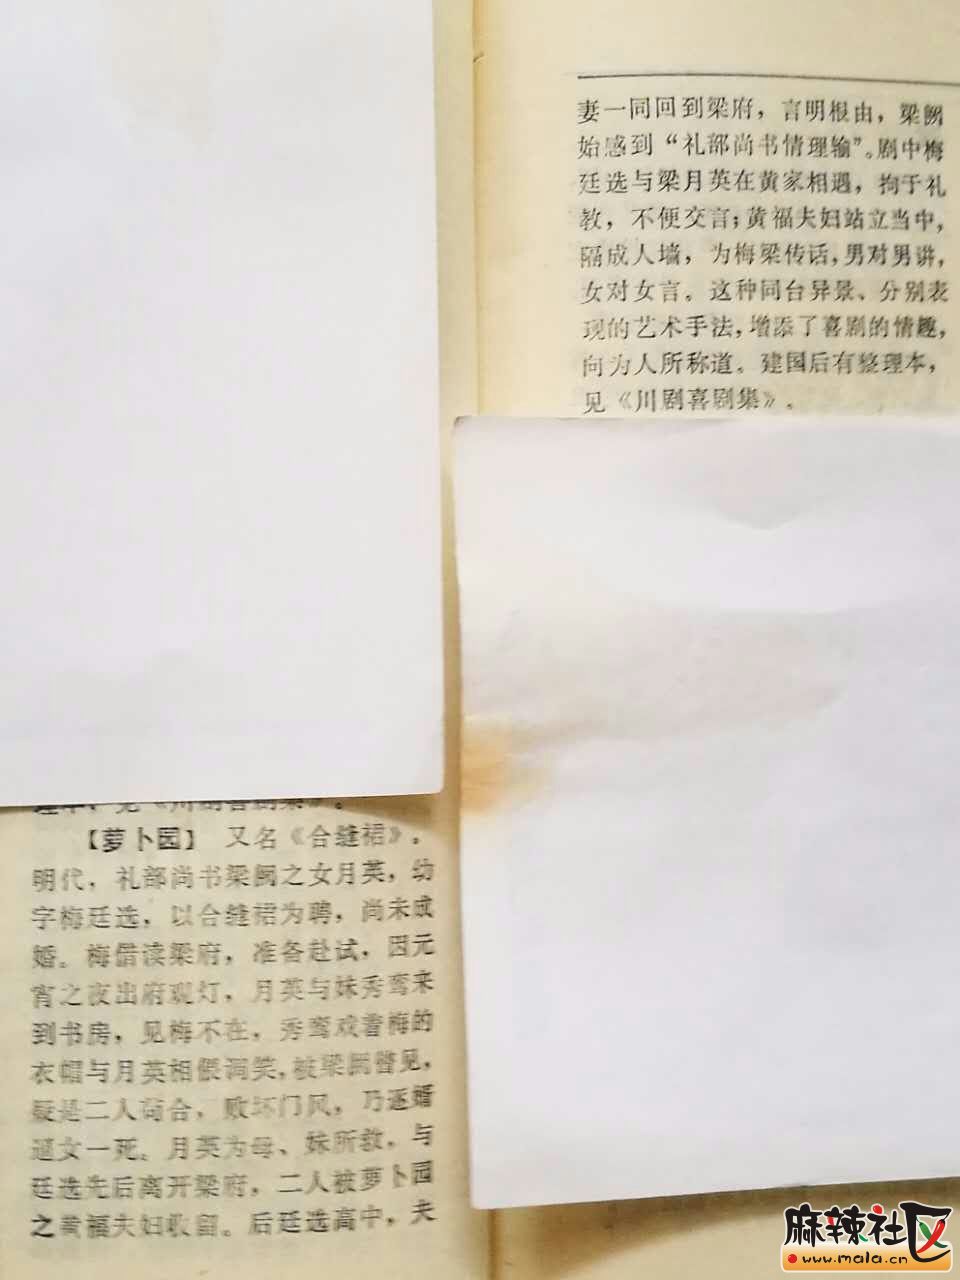 见《川剧喜剧集》.
【萝卜园】 又名《合缝裙》.
明代，礼部尚书梁阙之女月英，幼
字梅廷选，以合缝裙为聘，尚未成
婚。梅借读梁府，准备赴试，因元
宵之夜出府观灯，月英与妹秀鸾来
到书房，见梅不在，秀鸾戏着梅的
衣帽与月英相偎调笑，被梁阙瞥见，
疑是二人苟合，败坏门风，乃逐婿
逼女一死。月英为母、妹所救，与
廷选先后离开梁府，二人被萝卜园
之黄福夫妇收留。后廷选高中，夫
妻一同回到梁府，言明根由，梁阙
始感到“礼部尚书情理输”。剧中梅
廷选与梁月英在黄家相遇，拘于礼
教，不便交言；黄福夫妇站立当中，
隔成人墙，为梅梁传话，男对男讲，
女对女言。这种同台异景、分别表
现的艺术手法，增添了喜剧的情趣，
向为人所称道。建国后有整理本，
见《川剧喜剧集》.
麻辣社区
www.mala.cn